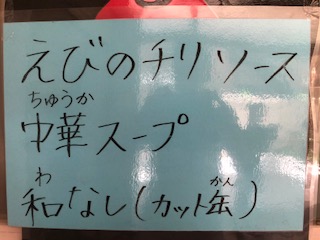 えびのチリソース
ちゅうか
中華スープ
わ　　　　　かん
和なし(カット缶)